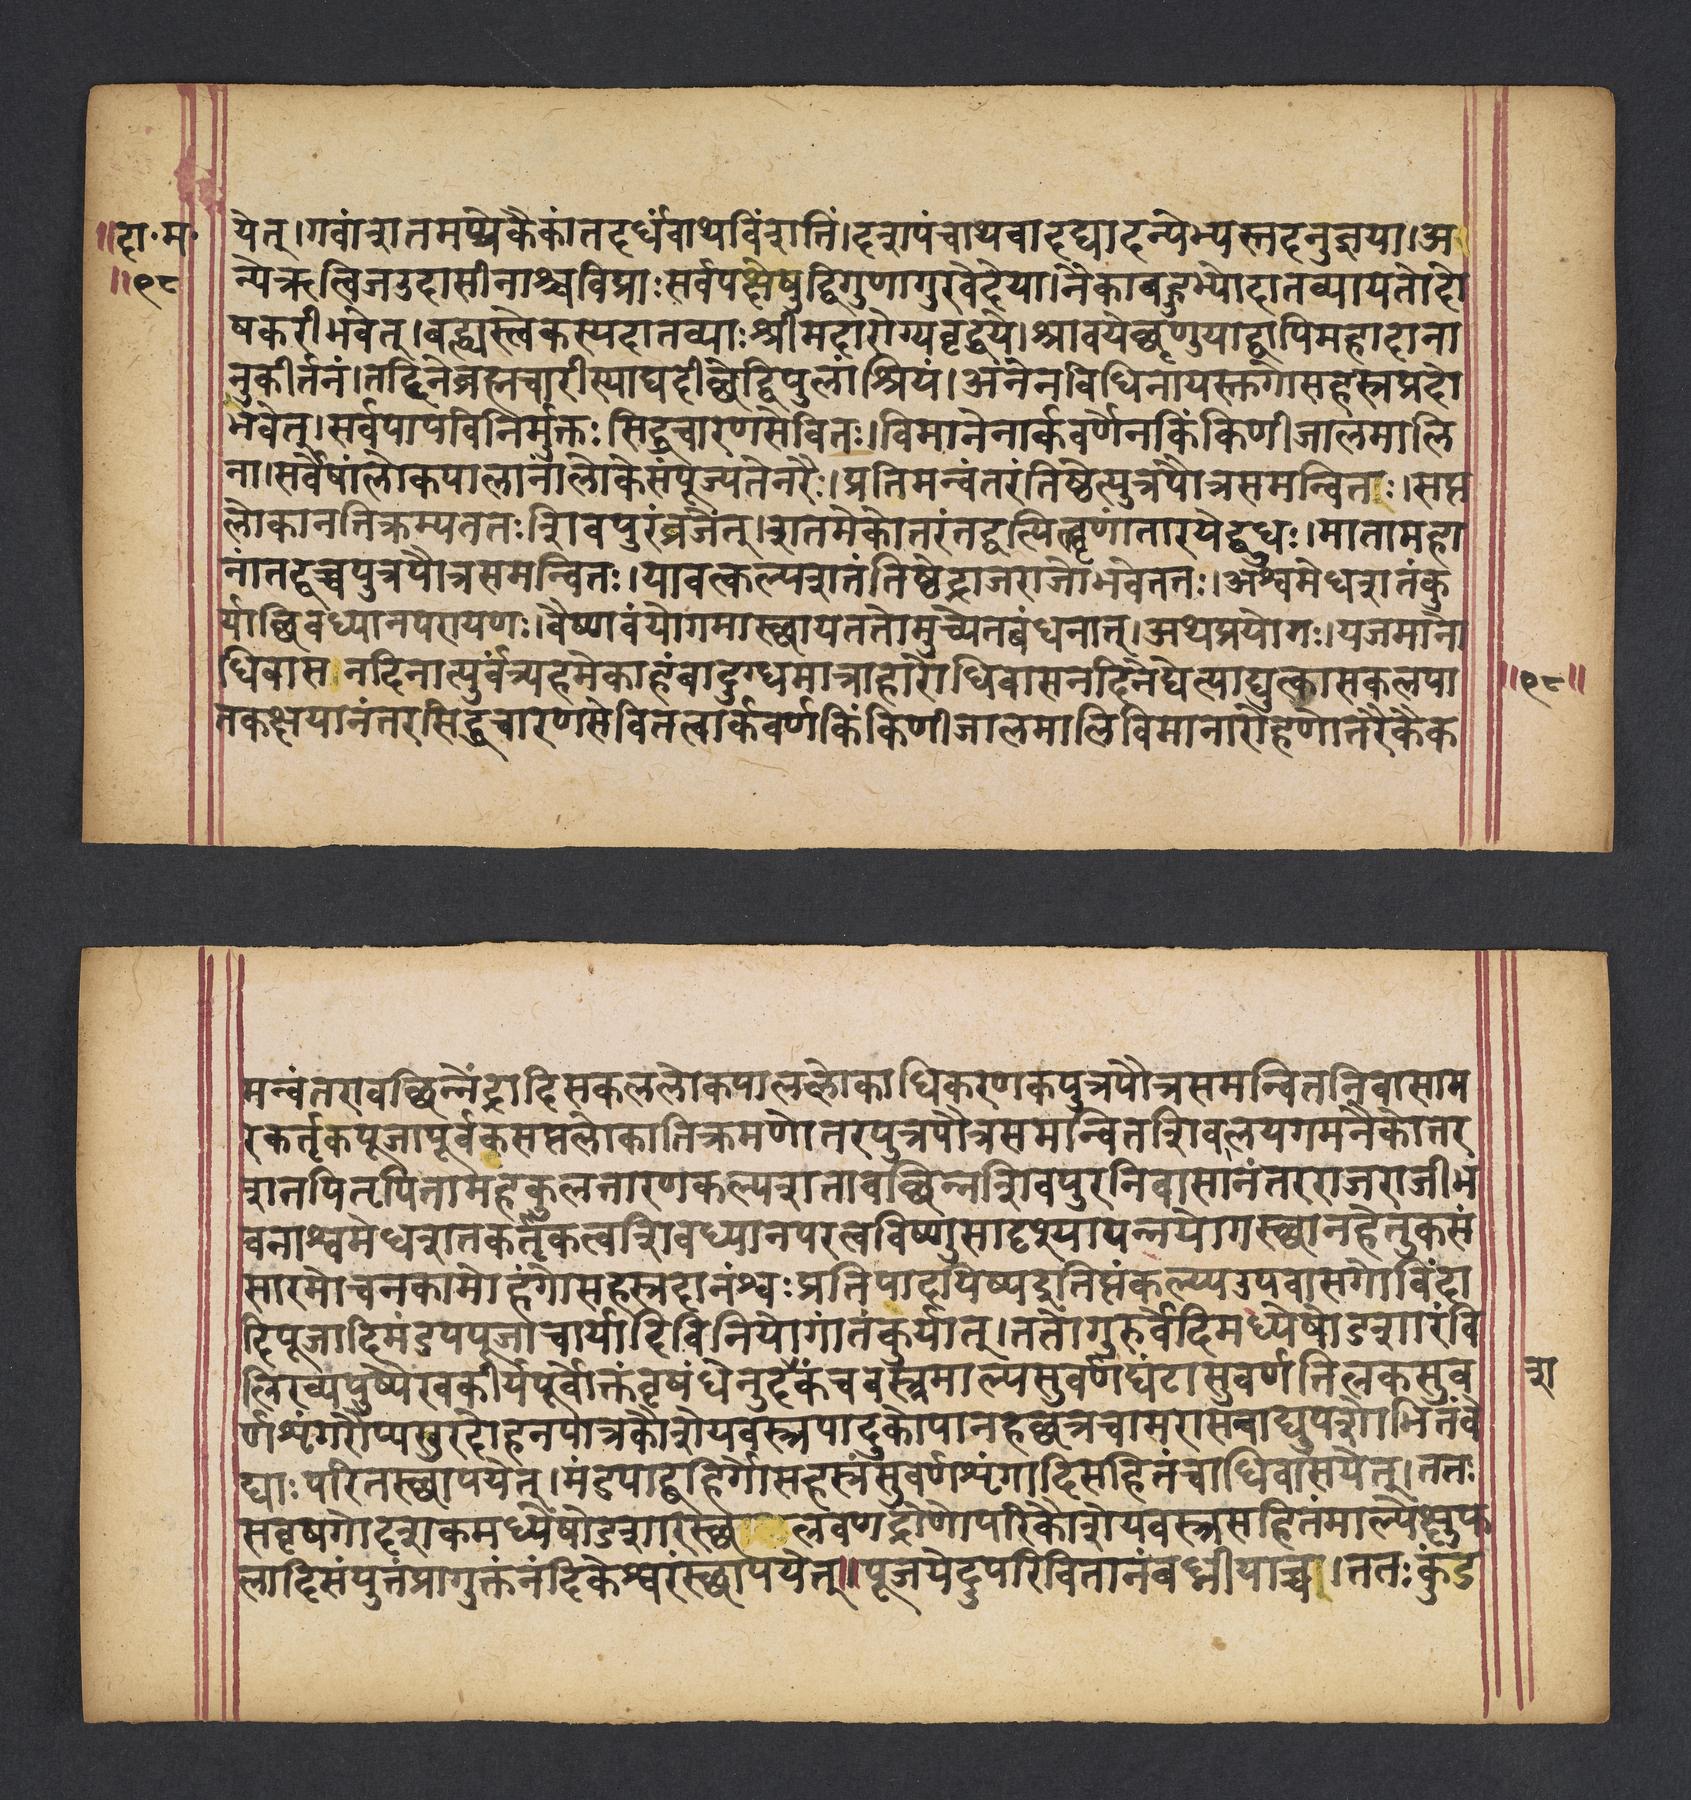 ॥दा॰म॰
॥९८
येत्।गवांशतमप्येकैकांतदर्धंवाथविंशतिं।दशपंचाथवादद्यादन्येभ्यस्तदनुज्ञया।अ
न्येऋत्विजउदासीनाश्चविप्राःसर्वपक्षेषुद्विगुणागुरवेदेया।नैकाबहुभ्योदातव्यायतोदो
षकरीभवेत्।बह्व्यस्त्वेकस्यदातव्याःश्रीमदारोग्यवृद्धये।श्रावयेच्छृणुयाद्वापिमहादाना
नुकीर्तनं।तद्दिनेब्रह्मचारीस्याद्यदीच्छेद्विपुलांश्रियं।अनेनविधिनायस्तुगोसहस्रप्रदो
भवेत्।सर्वपापविनिर्मुक्तःसिद्धचारणसेवितः।विमानेनार्कवर्णेनकिंकिणीजालमालि
ना।सर्वेषांलोकपालानांलोकेसंपूज्यतेनरैः।प्रतिमन्वंतरंतिष्ठेत्पुत्रपौत्रसमन्वितः।सप्त
लोकानतिक्रम्यततःशिवपुरंव्रजेत्।शतमेकोतरंतद्वत्पितॄणांतारयेद्बुधः।मातामहा
नांतद्वच्चपुत्रपौत्रसमन्वितः।यावत्कल्पशतंतिष्ठेद्राजराजोभवेततः।अश्वमेधशतंकु
र्याछिवध्यानपरायणः।वैष्णवंयोगमास्छायततोमुच्येतबंधनात्।अथप्रयोगः।यजमानो
धिवासनदिनात्पुर्वंत्र्यहमेकाहंवादुग्धमात्राहारोधिवासनदिनेद्येत्याद्युत्कासकलपा
तकक्षयानंतरसिद्धचारणसेवितत्वार्कवर्णकिंकिणीजालमालिविमानारोहणोतरैकैक
॥९८॥
मन्वंतरावछिन्नेंद्रादिसकललोकपाललोकाधिकरणकपुत्रपौत्रसमन्वितनिवासाम
रकर्तृकपूजापूर्वकसप्तलोकातिक्रमणोतरपुत्रपौत्रसमन्वितशिवलयगमनैकोत्तर
शतपितृपितामहकुलतारणकल्पशतावछिन्नशिवपुरनिवासानंतरराजराजीभ
वनाश्वमेधशतकर्तृकत्वशिवध्यानपरत्वविष्णुसादृश्यापन्नयोगस्छानहेतुकसं
सारमोचनकामोहंगोसहस्रदानंश्वःप्रतिपादयिष्यइतिसंकल्प्यउपवासगोविंदा
दिपूजादिमंडपपूजाचार्यादिविनियोगांतंकुर्यात्।ततोगुरुर्वेदिमध्येषोडशारंवि
लिख्यपुष्पैरवकीर्यपूर्वोक्तंवृषंधेनुदशकंचवस्त्रमाल्यसुवर्णघंटासुवर्णतिलकसुव
र्णशृंगरौप्यखुरदोहनपात्रकौशेयवस्त्रपादुकोपानहछत्रचामरासनाद्युपशोभितंवे
शा
द्याःपरितस्छापयेत्।मंडपाद्बहिर्गोसहस्रंसुवर्णशृंगादिसहितंचाधिवासयेत्।ततः
सवृषगोदशकमध्येषोडशारस्छलवणद्रोणोपरिकौशेयवस्त्रसहितंमाल्येक्षुफ
लादिसंयुतंप्रागुक्तंनंदिकेश्वरंस्छापयेत्॥पूजयेदुपरिवितानंबध्नीयाच्च।ततःकुंड